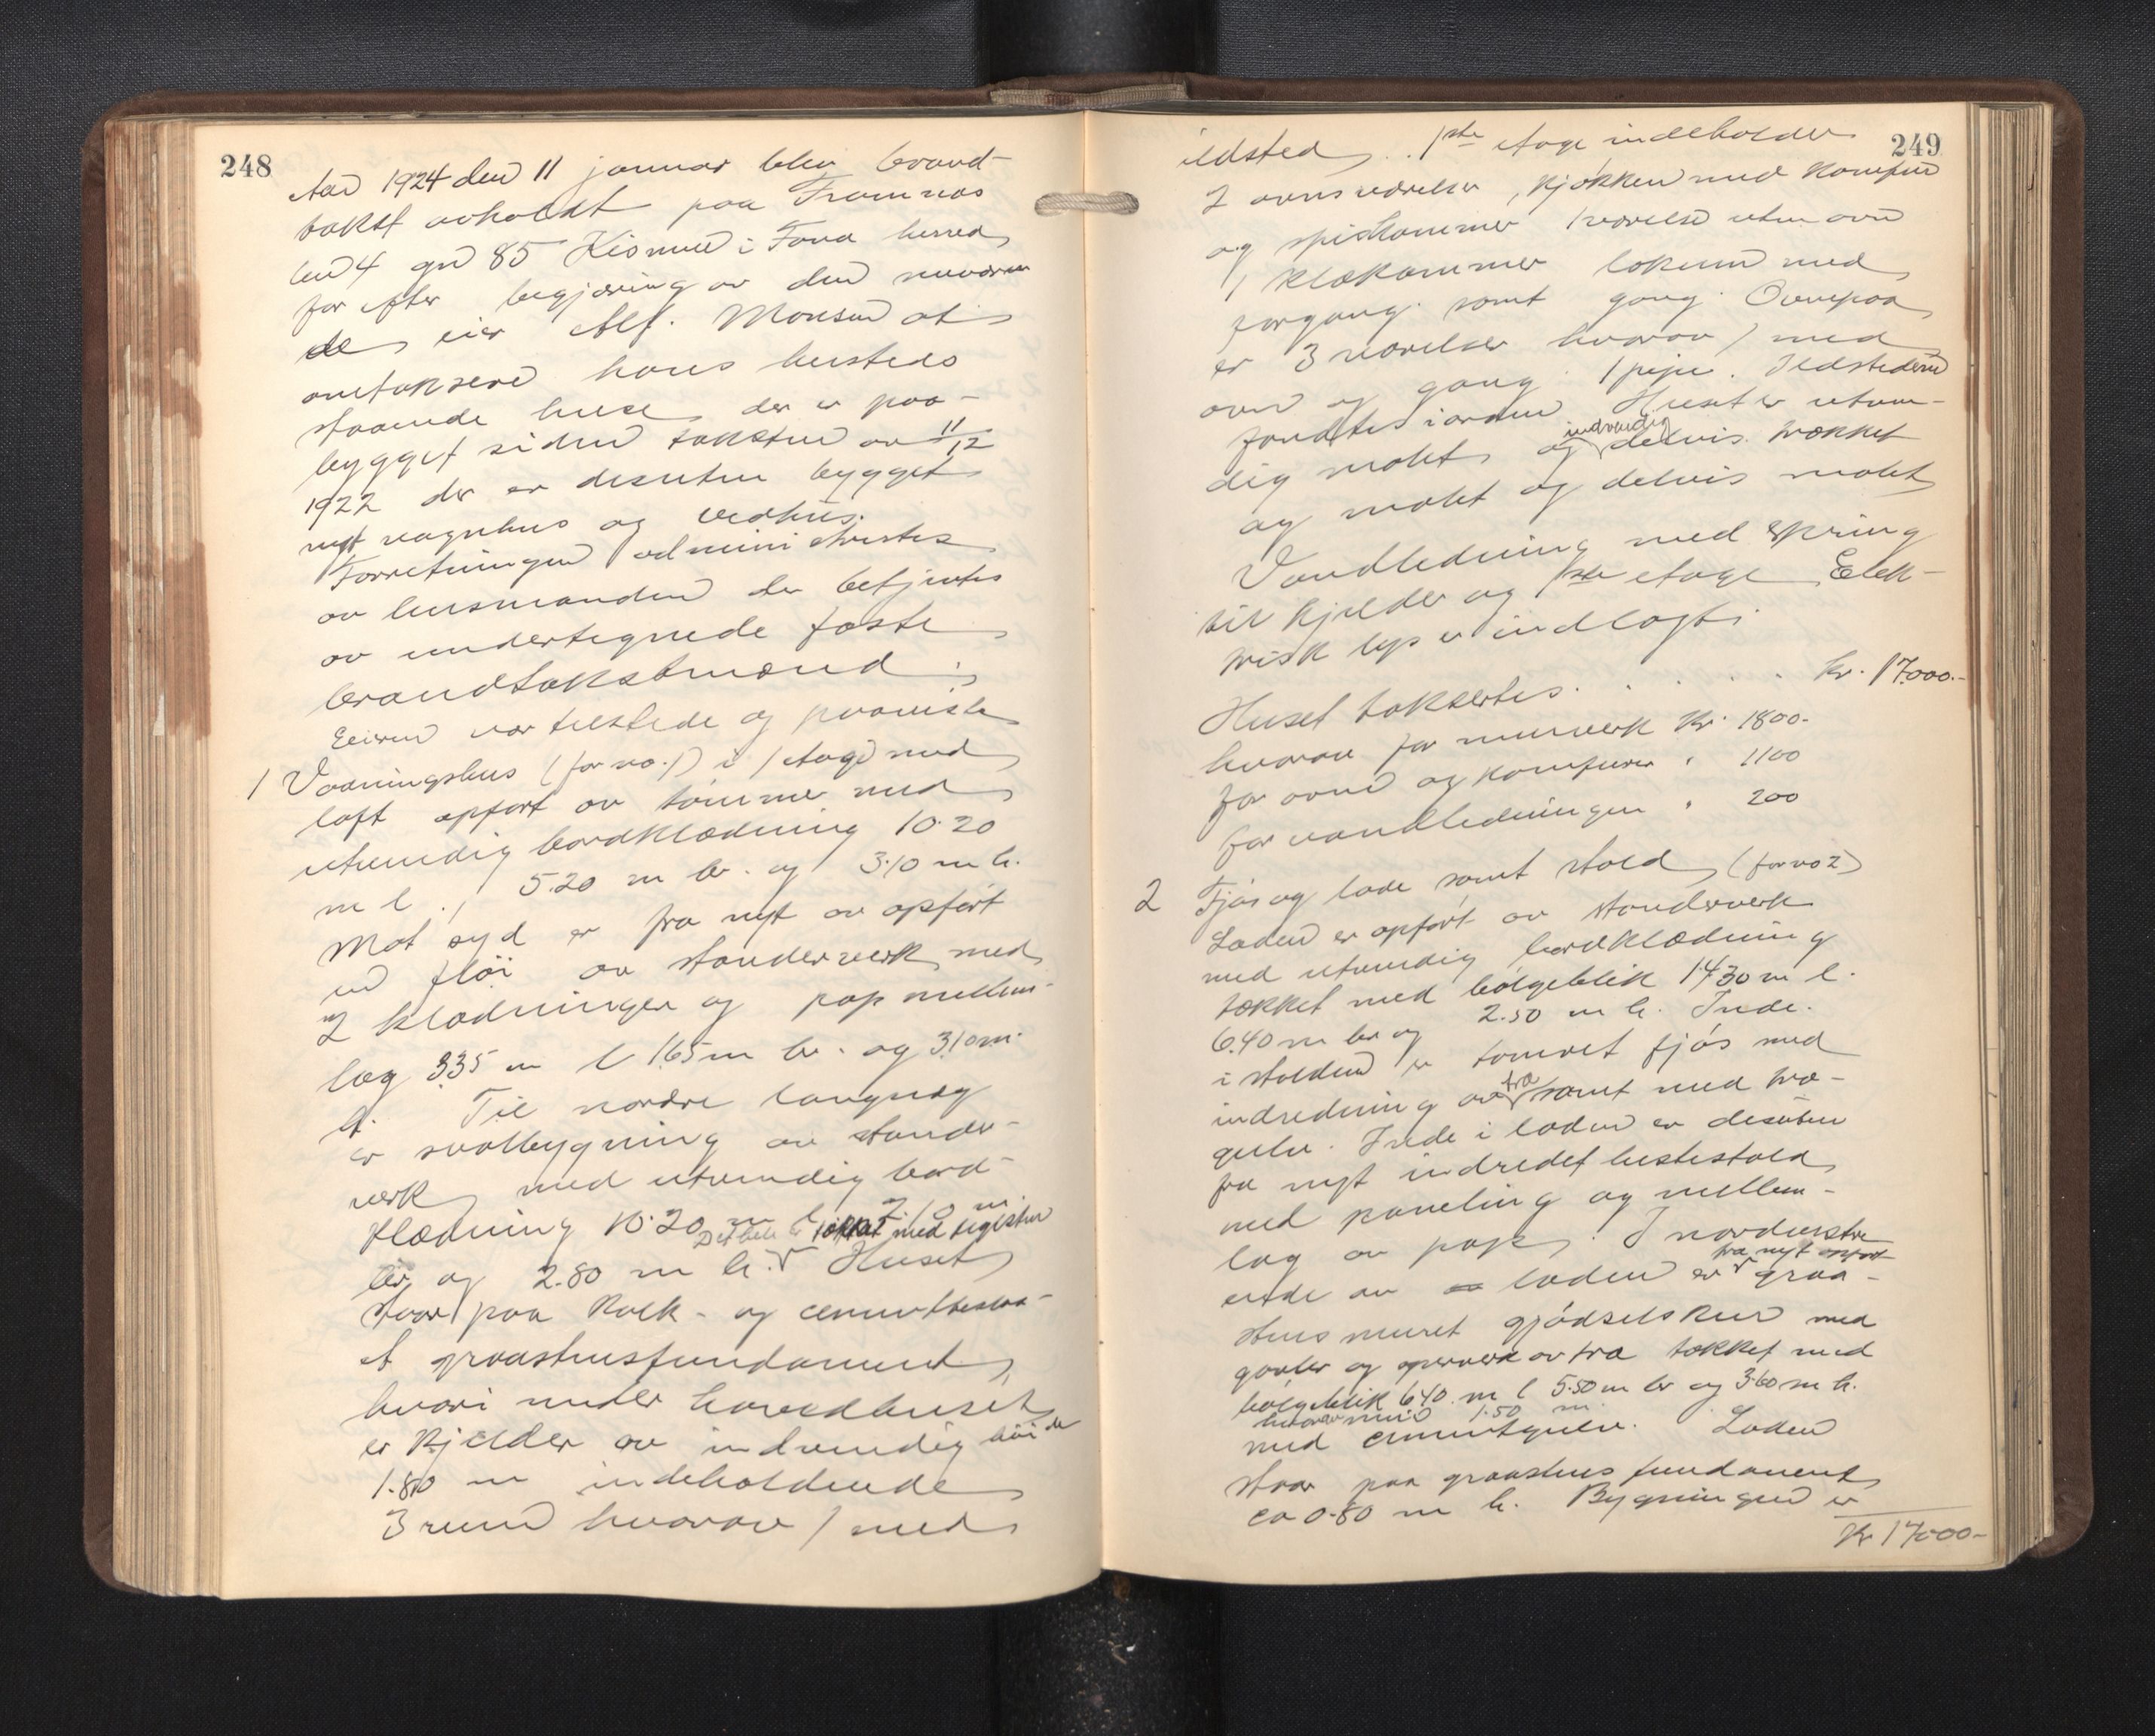 248
Aar 1924 den 11 januar blev brand-
takst avholdt paa Framnæs
bn 4 gn 85 Kismul i Fana herred
for efter begjæring av den nuværen
de eier Alf. Monsen at
omtaksere hans husteds
staaende huse der er paa-
bygget siden taksten av 11/12
1922 der er desuten bygget
nyt vognhus og vedhus.
Forretningen administrertes
av lensmanden der betjentes
av undertegnede faste
brandtakstmænd.
Eieren var tilstede og paaviste
1 Vaaningshus (før no. 1) i 1 etage med
loft opført av tømmer med
utvendig bordklædning 10.20
m l., 5.20 m br. og 3.10 m h.
Mot syd er fra nyt av opført
en fløi av stenderverk med
2 klædninger og pap mellem-
læg 3.35 m l 1.65 m br. og 3.10 m.
h. Til nordre langvæg
er svalbygning av stender-
verk med utvendig bord-
klædning 10.20 m l. 2.10 m.
Det hele er tækket med teglsten
br. og 2.80 m h. Huset
staar paa kalk- og cementbesat-
t graastensfundament,
hvori under hovedhuset
er kjelder av indvendig høide
1.80 m indeholdende
3 rum hvorav 1 med
249
ildsted. 1ste etage indeholder
2 ovnsværelser, kjøkken med komfur
og spiskammer 1 værelse uten ovn
1 klækammer lokum med
forgang samt gang. Ovenpaa
er 3 værelser hvorav 1 med
ovn og gang. 1 pipe. Ildstederne
fandtes i orden. Huset er utven-
indvendig
dig malt og delvis trækket
og malt og delvis malt
Vandledning med spring
til kjelder og 1ste etage. Elek-
trisk lys er indlagt.
Huset taksertes . . . . . kr. 17000.-
hvorav for murverk kr. 1800-
for ovne og komfurer " 1100
for vandledningen " 200
2 Fjøs og lade samt stald (før no 2)
Laden er opført av stenderverk
med utvendig bordklædning
tækket med bølgeblik 14.30 m l.
6.40 m br og 2.50 m h. Inde.
i stalden er tømret fjøs med
træ
indredning av samt med træ-
gulv. Inde i laden er desuten
fra nyt indredet hestestald
med paneling og mellem-
læg av pap. I nordvestre
fra nyt opført
ende av laden er graa-
stensmuret gjødselskur med
gavler og oververk av træ tækket med
bølgeblik 6.40 m l 5.50 m br og 3.60 m h.
hvorav mur 1.50 m
med cementgulv. Laden
staar paa graastens fundament
ca 0.80 m h. Bygningen er
Kr 17000-